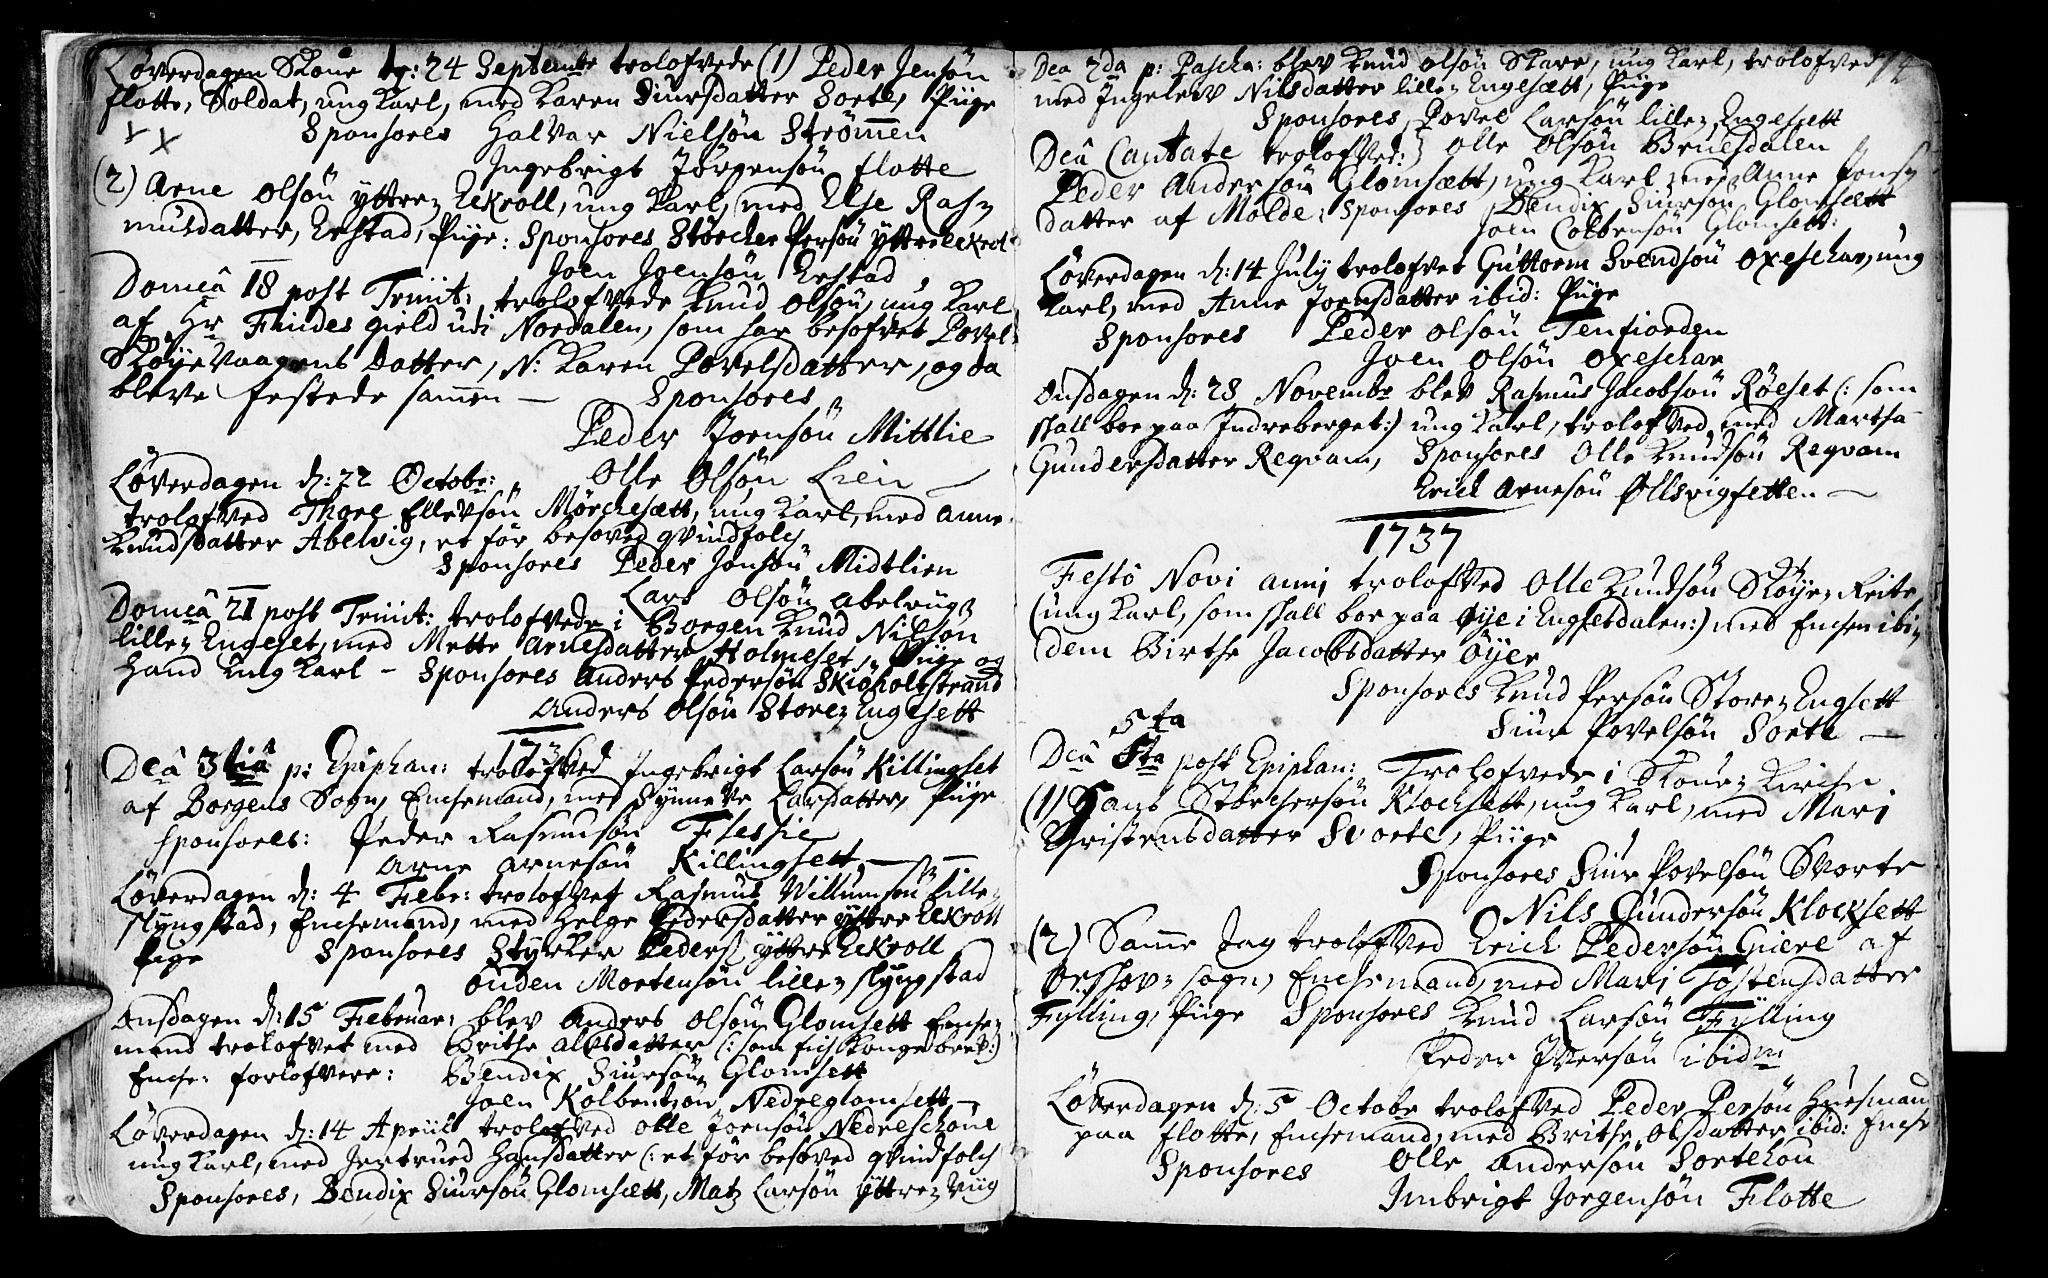 Löverdagen Skoue dg: 24 Septembr trolofvede (1) Peder Jensön
flotte, Soldat, ung Karl, med Karen Siursdatter Sorte, Piige
Sponsores Halvar Nielsön Strömen
Ingebrigt Jörgensön flotte
(2) Arne Olsön yttre Eekroll, ung Karl, med Else Ras-
musdatter, Erstad, Piige: Sponsores Störcher Persön Yttre Eekrol
Joen Joensön Erstad
Domcâ 18 post Trinit: trolofvede Knud Olsön, ung Karl
af Hr Findes gield udi Nordalen, som har besofvet Povel
Sköyevaagens Datter, N: Karen Povelsdatter, og da
bleve festede samen — Sponsores
Peder Joensön Mittlie
Olle Olsön Lien —
Löverdagen d: 22 Octobr:
trolofved Thore Ellevsön Mörchesætt, ung Karl, med Anne
Knudsdatter Abelvig, et för besoved qvindfolch
Sponsores Peder Jonsön Midtlien
Lars Olsön Abelvug
Domcâ 21 post Trinit: trolofvede i Borgen Knud Nilsön
lille Engeset, med Mette Arnesdatter Holmeset, Piige og
hand ung Karl — Sponsores Anders Pedersön Skiöholtstrand
Anders Olsön Store Engesett
1736
Dcâ 3tiâ p: Epiphan: trolofved Ingebrigt Larsön Killingset
af Borgens Sogn, Enchemand, med Synneve Larsdatter, Piige
Sponsores: Peder Rasmusön Flessie
Arne Arnesön Killingsett —
Löverdagen d: 4 Febr: trolofvet Rasmus Willumsön lille
Slyngstad, Enchemand, med Helge Pedersdatter yttre Eekroll
Pige Sponsores Styrker Peders: yttre Eekroll
Ouden Mortensön lille Slyngstad
Onsdagen d: 15 Februar: blev Anders Olsön Glomsett Enche-
mand trolofvet med Brithe Alosdatter (: som fich Kongebrev:)
Enche: forlofvere: Bendix Siursön Glomsett
Joen Kolbensön Nedreglomsett —
Löverdagen d: 14 Apriil trolofved Olle Joensön Nedreschoue
ung Karl, med Jertrued Hansdatter (: et för besoved qvindfolch
Sponsores, Bendix Siursön Glomsætt, Matz Larsön Yttre Viig
Dca 2da p: Pascha: blev Knud Olsön Skare, ung Karl, trolofved
med Ingelev Nilsdatter lille Engesætt, Piige
Sponsores, Povel Larsön lille Engesett
Olle Olsön Bruesdalen
Dcâ Cantate trolofved:
Peder Andersön Glomsætt, ung Karl med Anne Jons-
datter af Molde: Sponsores Bendix Siursön Glomsætt
Joen Colbensön Glomsett:
Löverdagen d: 14 July trolofvet Guttorm Svendsön Oxeschar, ung
Karl, med Anne Joensdatter ibid: Piige
Sponsores Peder Olsön Tenfiorden
Joen Olsön Oxeschar
Onsdagen d: 28 Novembr blev Rasmus Jacobsön Röeset (: som
skall boe paa Indreberget:) ung Karl, trolofved med Martha
Gundersdatter Reqvam, Sponsores Olle Knudsön Reqvam
Erich Arnesön Ollsvigsetten —
1737
Festo Novi anni trolofved Olle Knudsön Sköye Reite,
(ung Karl, som skall boe paa Öye i Engsetdalen:) med Enchen ibi-
dem Birthe Jacobsdatter Öyer
Sponsores Knud Persön Store Engsett
Siur Povelsön Sorte —
5ta
Dcâ 5ta post Epiphan: Trolofvede i Skoue Kirche
(1) Hans Störchersön Klochsett, ung Karl, med Mari
Christensdatter Svorte, Piige
Sponsores Siur Povelsön Svorte
Nils Gundersön Klocksett
(2) Same dag trolofved Erich Pedersön Giere af
Örschov sogn, Enchemand, med Mari Tostensdatter
Fylling, Piige Sponsores Knud Larsön Fylling
Peder Iversön ibidm
Löverdagen d: 5 Octobr trolofved Peder Persön Huusmand
paa flotte, Enchemand, med Brithe Olsdatter ibid: Enche
Sponsores Olle Andersön Sortehou
Imbrigt Jorgensön Flotte